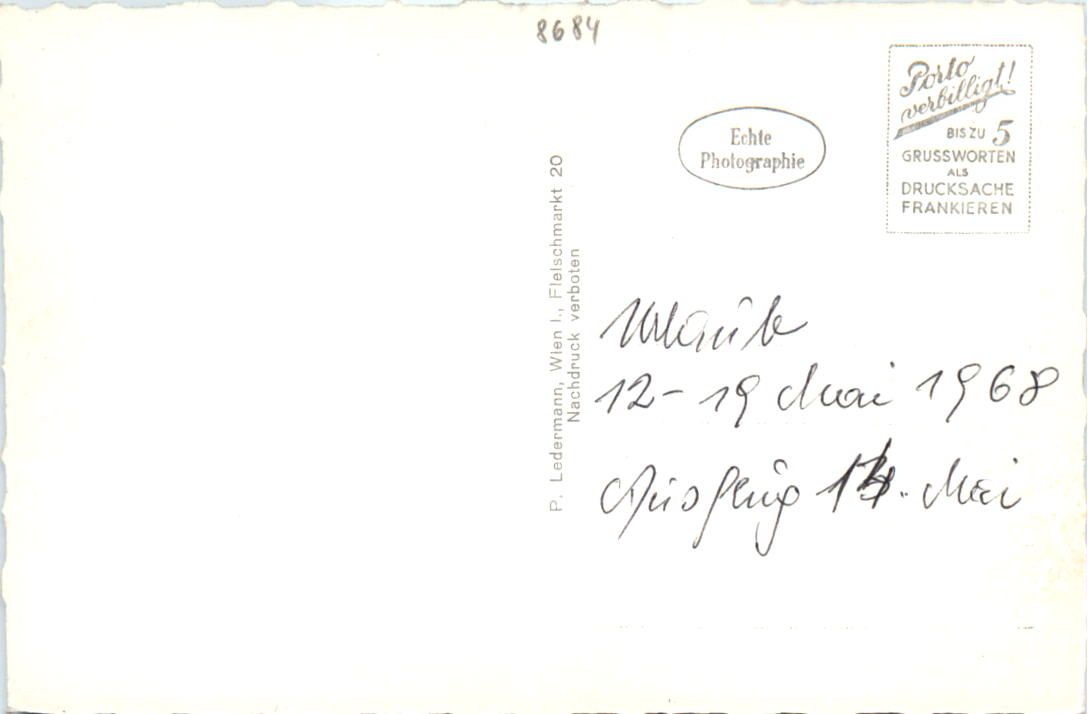 8684
Porto
verbilligt!
BIS ZU 5
GRUSSWORTEN
ALS
DRUCKSACHE
FRANKIEREN
Echte
Photographie
P. Ledermann, Wien I., Fleischmarkt 20
Nachdruck verboten
Urlaub
12-19 Mai 1968
Ausflug Mai